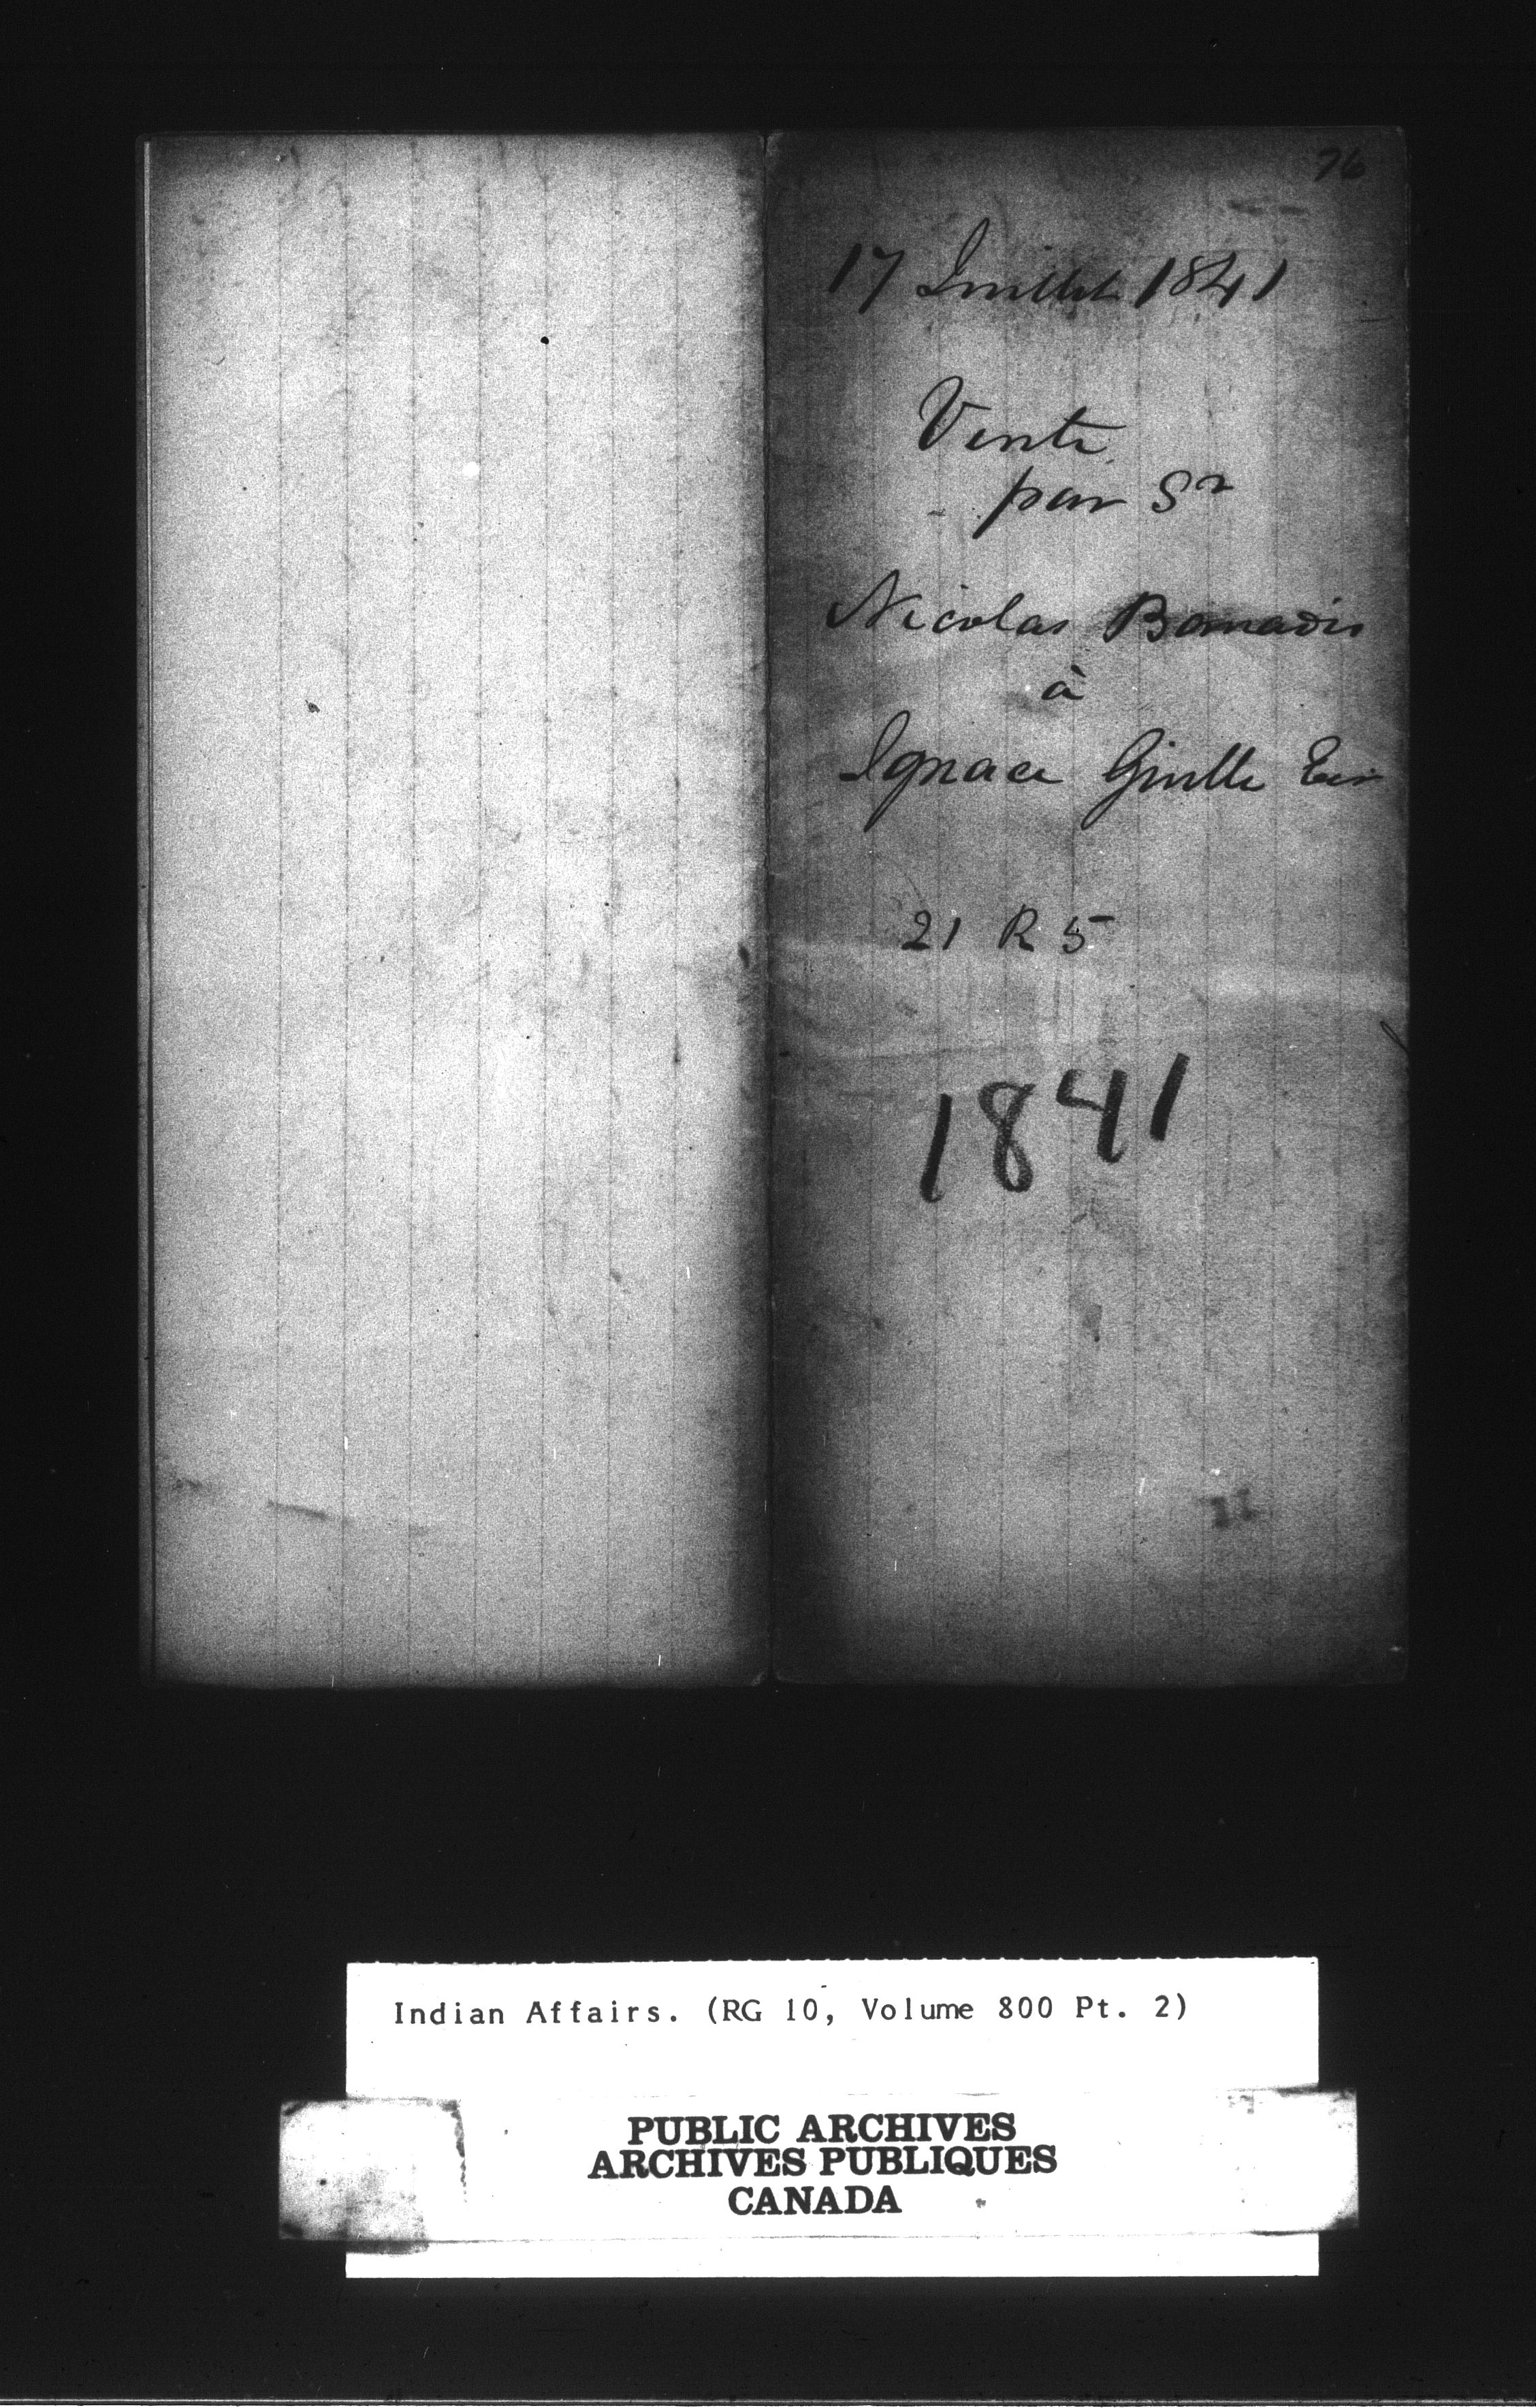 76
17 Juillet 1841
Vente
par Sr
Nicolas
à
Ignace Giulle
21 R 5
1841
Indian Affairs. (RG 10, Volume 800 Pt. 2)
PUBLIC ARCHIVES
ARCHIVES PUBLIQUES
CANADA